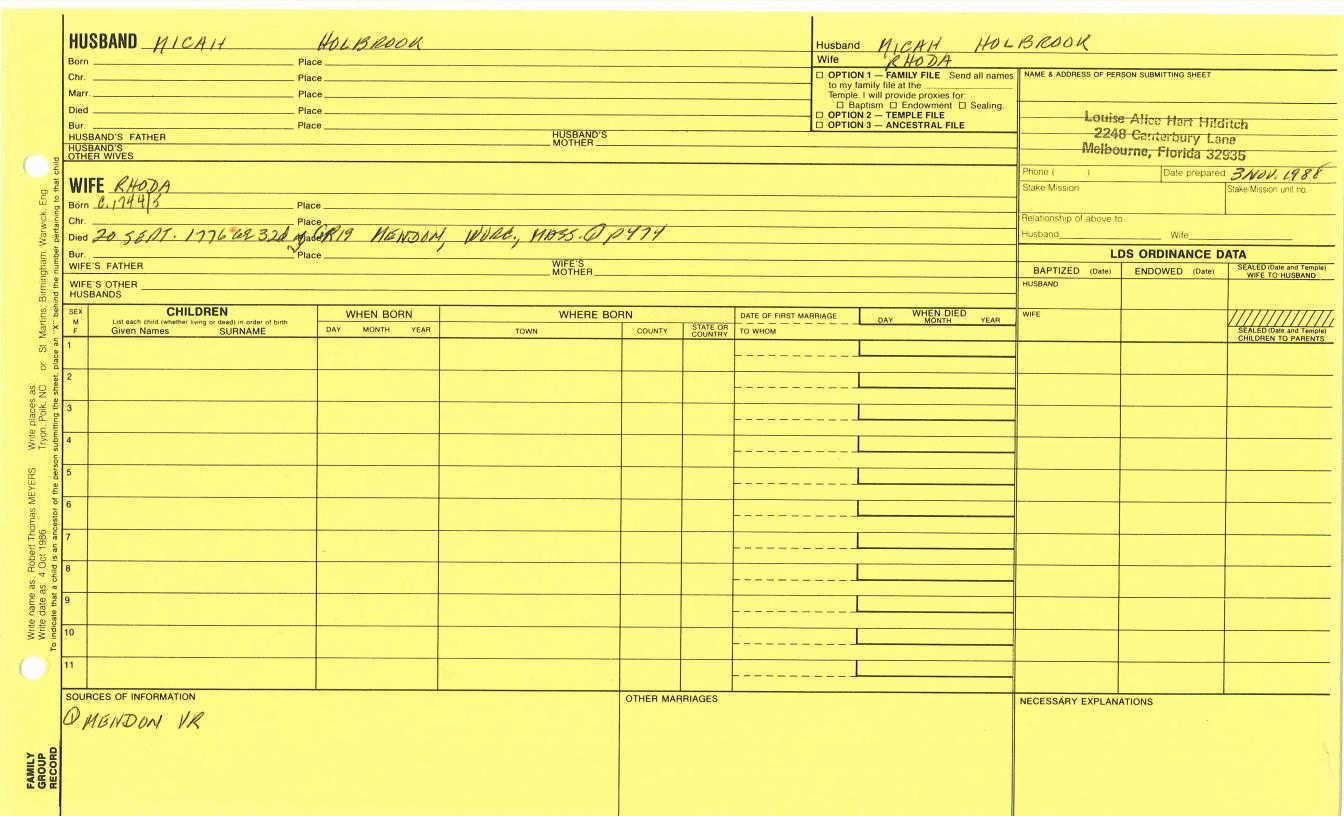 HUSBAND MICAH HOLBROOK
Born Place
Chr. Place
Marr. Place
Died Place
Bur. Place
HUSBAND'S FATHER HUSBAND'S MOTHER
HUSBAND'S OTHER WIVES
WIFE RHODA
Born c. 1744/5 Place
Chr. Place
Died 20 SEPT. 1776 Æ 32d y Place GR19 MENDON, WORC., MASS. ① P474
Bur. Place
WIFE'S FATHER WIFE'S MOTHER
WIFE'S OTHER HUSBANDS
Husband MICAH HOLBROOK
Wife RHODA
☐ OPTION 1 — FAMILY FILE Send all names
to my family file at the
Temple. I will provide proxies for:
☐ Baptism ☐ Endowment ☐ Sealing.
☐ OPTION 2 — TEMPLE FILE
☐ OPTION 3 — ANCESTRAL FILE
NAME & ADDRESS OF PERSON SUBMITTING SHEET
Louise Alice Hart Hilditch
2248 Canterbury Lane
Melbourne, Florida 32935
Phone ( ) Date prepared 3 NOV. 1988
Stake/Mission Stake/Mission unit no.
Relationship of above to
Husband Wife
LDS ORDINANCE DATA
BAPTIZED (Date) ENDOWED (Date) SEALED (Date and Temple) WIFE TO HUSBAND
HUSBAND
WIFE
SEALED (Date and Temple) CHILDREN TO PARENTS
SEX M F
CHILDREN
List each child (whether living or dead) in order of birth
Given Names SURNAME
WHEN BORN
DAY MONTH YEAR
WHERE BORN
TOWN COUNTY STATE OR COUNTRY
DATE OF FIRST MARRIAGE
TO WHOM
WHEN DIED
DAY MONTH YEAR
1
2
3
4
5
6
7
8
9
10
11
SOURCES OF INFORMATION
① MENDON VR
OTHER MARRIAGES
NECESSARY EXPLANATIONS
Write name as: Robert Thomas MEYERS Write places as: Tryon, Polk, NC or: St. Martins, Birmingham, Warwick, Eng
Write date as: 4 Oct 1986
To indicate that a child is an ancestor of the person submitting the sheet, place an "X" behind the number pertaining to that child
FAMILY
GROUP
RECORD